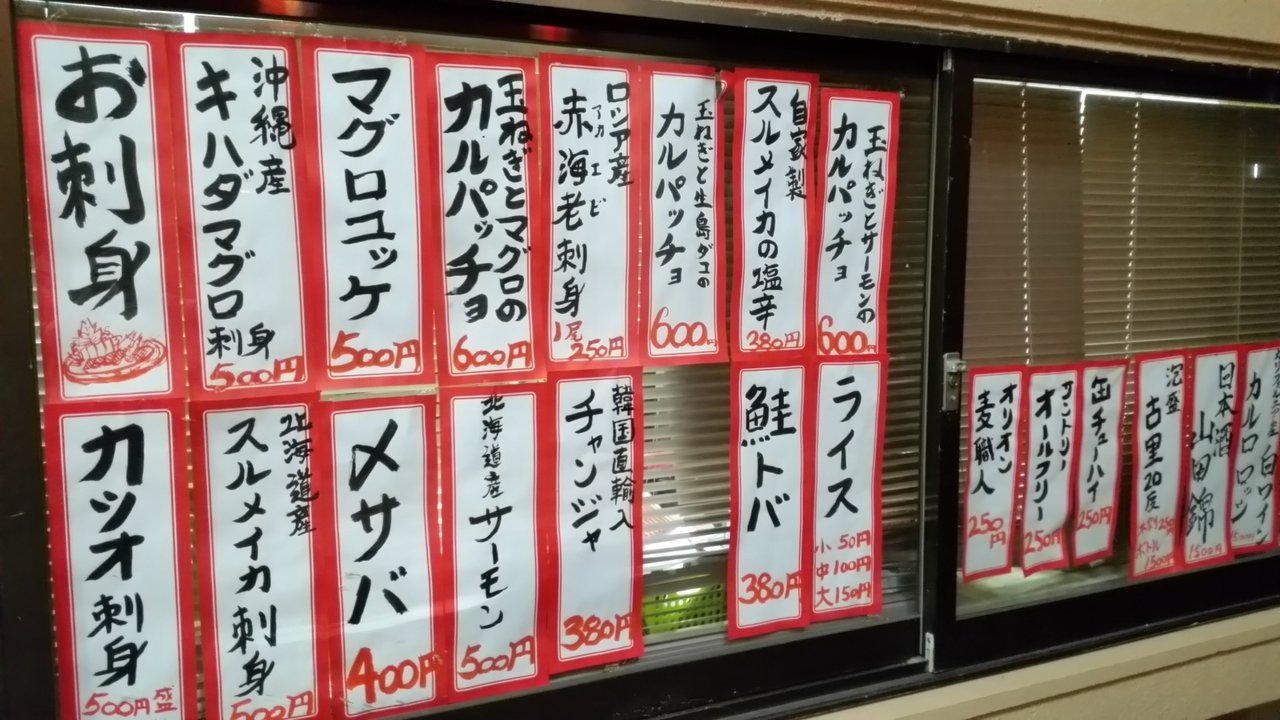 お刺身
沖縄産
キハダマグロ
刺身
500円
マグロユッケ
500円
玉ねぎとマグロの
カルパッチョ
600円
ロシア産
アカエビ
赤海老刺身
1尾
250円
玉ねぎと生島ダコの
カルパッチョ
600円
自家製
スルメイカの塩辛
380円
玉ねぎとサーモンの
カルパッチョ
600円
カツオ刺身
500円盛
北海道産
スルメイカ刺身
500円
〆サバ
400円
北海道産
サーモン
500円
韓国直輸入
チャンジャ
380円
鮭トバ
380円
ライス
小 50円
中 100円
大 150円
オリオン
麦職人
250円
サントリー
オールフリー
250円
缶チューハイ
250円
泡盛
古里20度
250
ボトル
1500円
日本酒
山田錦
1500円
白ワイン
カルロロッシ